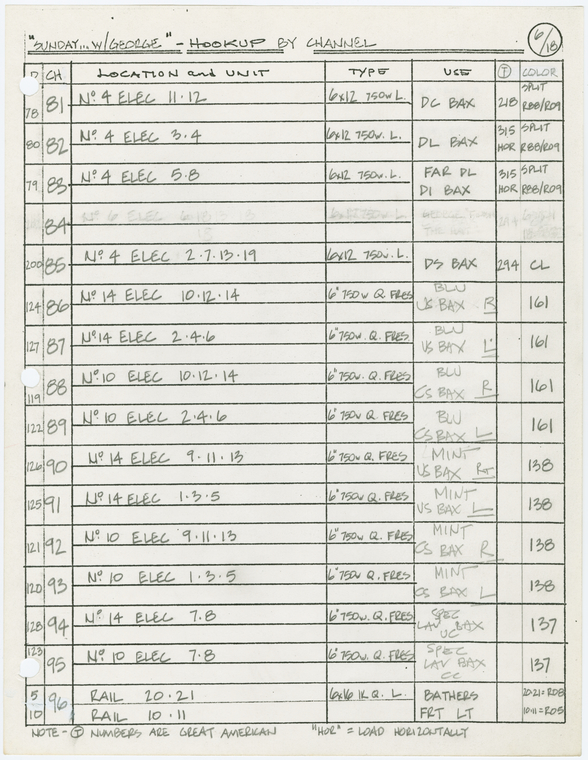 "SUNDAY... W/GEORGE" - HOOKUP BY CHANNEL 6/18
D CH LOCATION and UNIT TYPE USE Ⓣ COLOR
78 81 Nº 4 ELEC 11·12 6x12 750w L. DC BAX 218 SPLIT R88/R09
80 82 Nº 4 ELEC 3·4 6x12 750w. L. DL BAX 315 HOR SPLIT R88/R09
79 83 Nº 4 ELEC 5·8 6x12 750w. L. FAR DL DI BAX 315 HOR SPLIT R88/R09
84
200 85 Nº 4 ELEC 2·7·13·19 6x12 750w. L. DS BAX 294 CL
124 86 Nº 14 ELEC 10·12·14 6" 750w Q. FRES BLU US BAX R 161
127 87 Nº 14 ELEC 2·4·6 6" 750w. Q. FRES BLU US BAX L 161
119 88 Nº 10 ELEC 10·12·14 6" 750w. Q. FRES BLU CS BAX R 161
122 89 Nº 10 ELEC 2·4·6 6" 750w Q. FRES BLU CS BAX L 161
126 90 Nº 14 ELEC 9·11·13 6" 750w Q. FRES MINT US BAX RT 138
125 91 Nº 14 ELEC 1·3·5 6" 750w. Q. FRES MINT US BAX L 138
121 92 Nº 10 ELEC 9·11·13 6" 750w. Q. FRES MINT CS BAX R 138
120 93 Nº 10 ELEC 1·3·5 6" 750w. Q. FRES MINT CS BAX L 138
128 94 Nº 14 ELEC 7·8 6" 750w. Q. FRES SPEC LAV BAX UC 137
123 95 Nº 10 ELEC 7·8 6" 750w. Q. FRES SPEC LAV BAX CC 137
5 96 RAIL 20·21 6x16 1K Q. L. BATHERS 20·21=R08
10 RAIL 10·11 FRT LT 10·11=R05
NOTE - Ⓣ NUMBERS ARE GREAT AMERICAN "HOR" = LOAD HORIZONTALLY